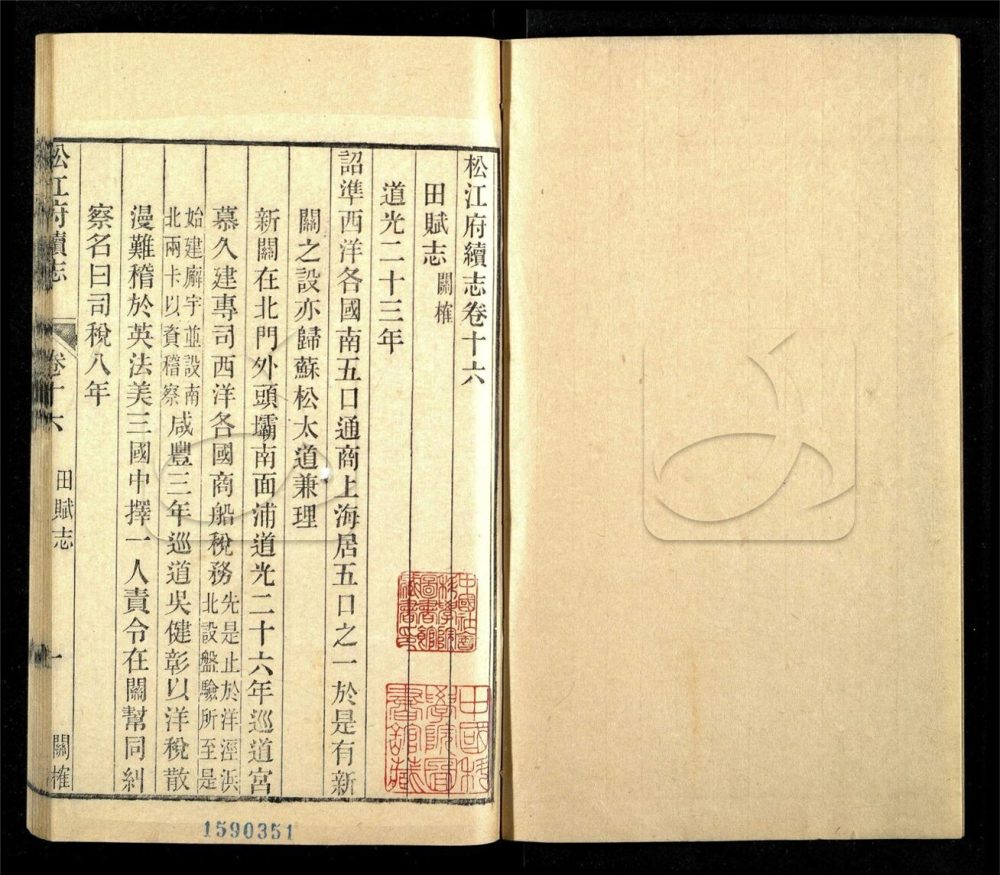 松江府續志卷十六
田賦志 關榷
道光二十三年
詔準西洋各國南五口通商上海居五口之一於是有新
關之設亦歸蘇松太道兼理
新關在北門外頭壩南面浦道光二十六年巡道宮
慕久建專司西洋各國商船稅務先是止於洋涇浜北設盤驗所至是
始建廨宇並設南北兩卡以資稽察咸豐三年巡道吳健彰以洋稅散
漫難稽於英法美三國中擇一人責令在關幫同糾
察名曰司稅八年
松江府續志 卷十六 田賦志 一 關榷
中國社會
科學院
圖書館
藏書印
中國科
學院圖
書館藏
1590351